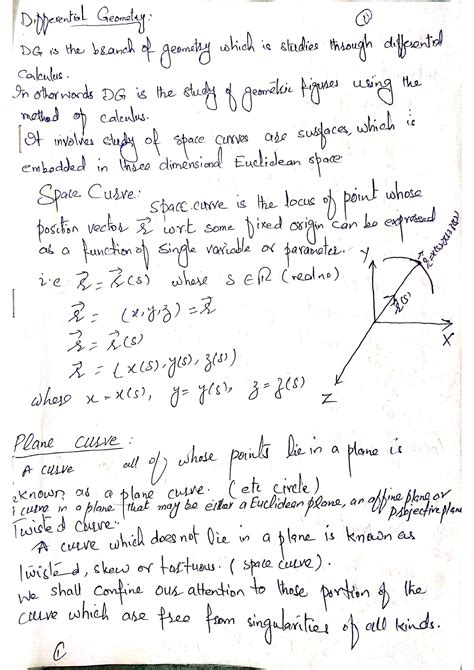 Differential Geometry:
DG is the branch of geometry which is studies through differential
Calculus.
In otherwords DG is the study of geometric figures using the
method of calculus.
It involves study of space curves are surfaces, which is
embedded in three dimensional Euclidean space
Space Curve:
space curve is the locus of point whose
position vector r⃗ wrt some fixed origin can be expressed
as a function of single variable or parameter.
i.e r⃗ = r⃗(s) where s ∈ ℝ (real no)
r⃗ = (x,y,z) = r⃗
r⃗ = r⃗(s)
r⃗ = (x(s), y(s), z(s))
where x = x(s), y = y(s), z = z(s)
Y
r⃗(s)
X
Z
Plane curve:
A curve all of whose points lie in a plane is
known as a plane curve. (etc circle)
curve in a plane that may be either a Euclidean plane, an affine plane or
projective plane
Twisted Curve:
A curve which does not lie in a plane is known as
twisted, skew or tortuous. (space curve).
We shall confine our attention to those portion of the
curve which are free from singularities of all kinds.